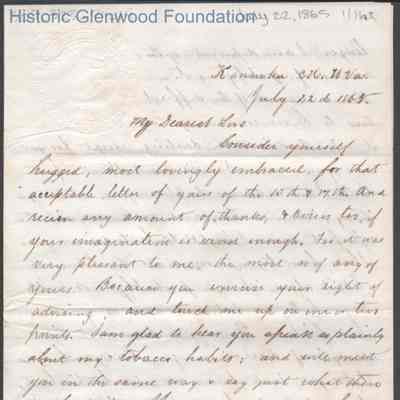 Historic Glenwood Foundation
July 22, 1865
Kanawha C.H. W Va.
July 22d 1865.
My Dearest Lou
Consider yourself
hugged, most lovingly embraced, for that
acceptable letter of yours of the 15th & 17th. And
receive any amount of thanks, & kisses too, if
your imagination is broad enough. For it was
very pleasant to me, the most so of any of
yours. Because you exercise your right of
advising, and touch me up on one or two
points. I am glad to hear you speak so plainly
about my tobacco habits; and will meet
you in the same way & say just what there